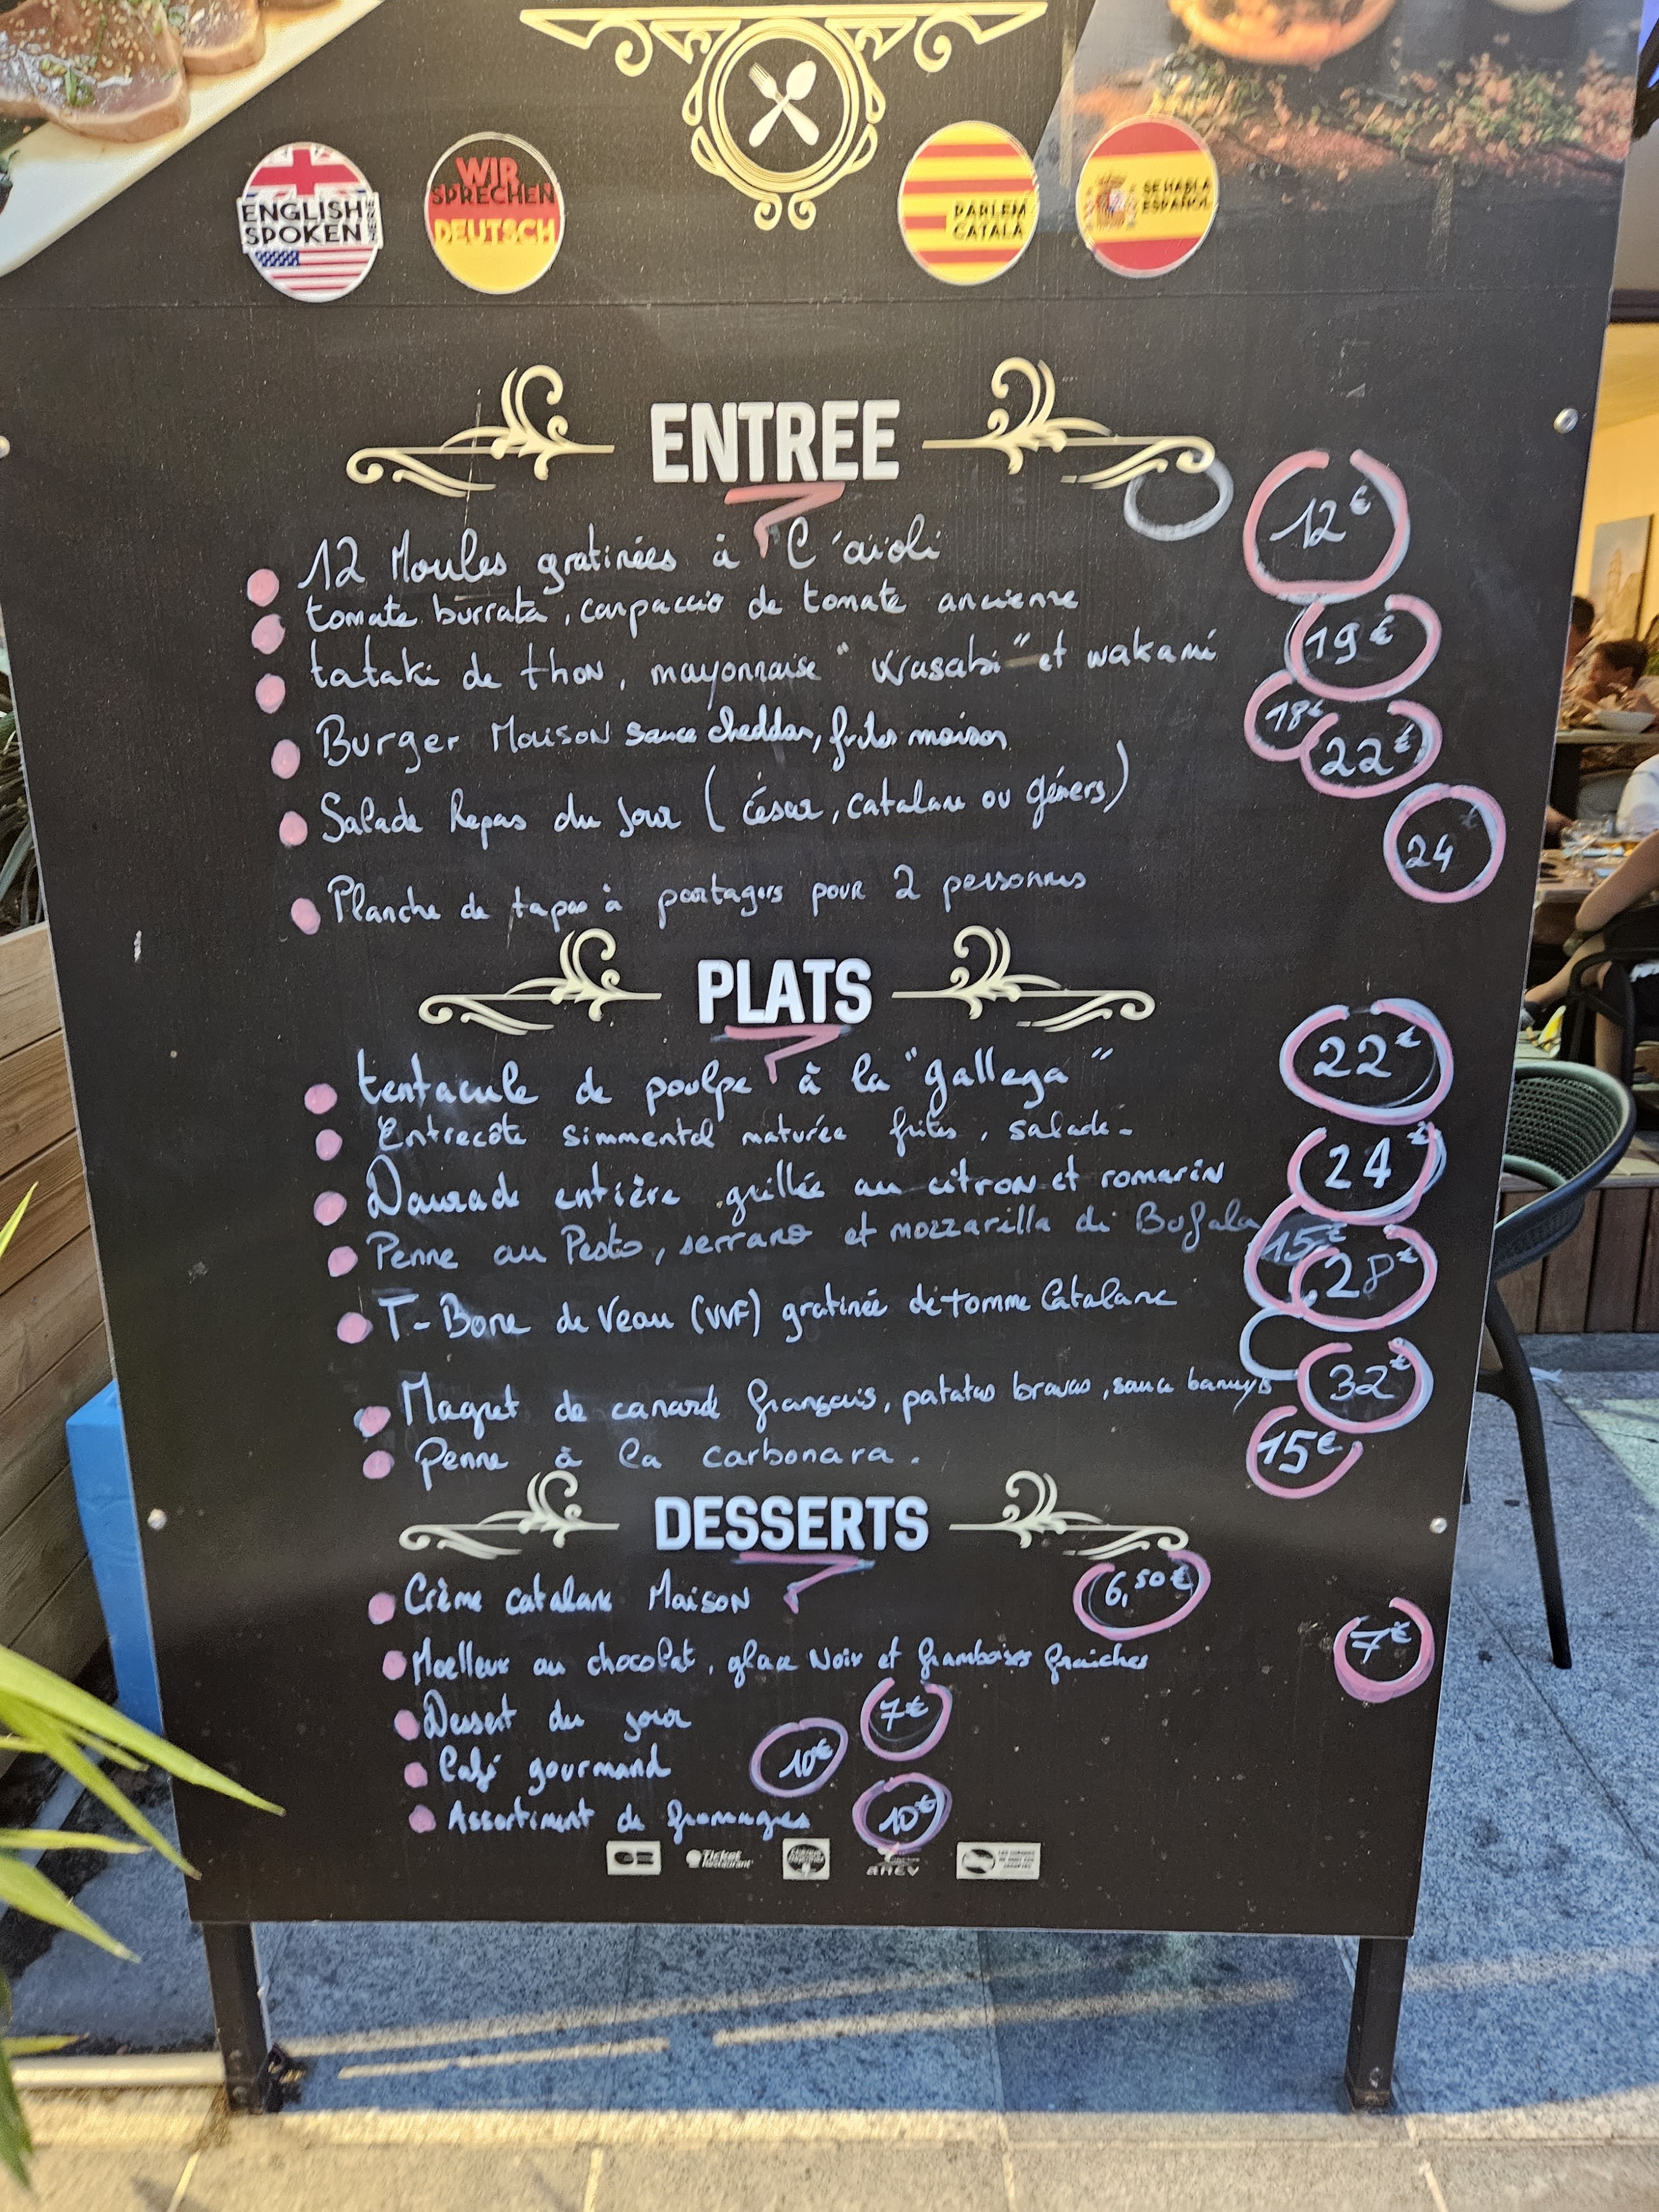 ENGLISH
SPOKEN
WIR
SPRECHEN
DEUTSCH
PARLEM
CATALÀ
SE HABLA
ESPAÑOL
ENTREE
12 Moules gratinées à l'aïoli 12€
tomate burrata, carpaccio de tomate ancienne
tataki de thon, mayonnaise "Wasabi" et wakamé 19€
Burger Maison sauce cheddar, frites maison 18€
22€
Salade Repas du Jour (César, catalane ou gésiers)
24
Planche de tapas à partagers pour 2 personnes
PLATS
tentacule de poulpe à la "gallega" 22€
Entrecôte simmental maturée frites, salade- 24€
Daurade entière grillée au citron et romarin
Penne au Pesto, serrano et mozzarilla di Bufala 15€
T-Bone de Veau (VVF) gratinée de tomme Catalane 28€
Magret de canard français, patatas bravas, sauce banyuls 32€
Penne à la carbonara. 15€
DESSERTS
Crème catalane Maison 6,50€
Moelleux au chocolat, glace Noix et framboises fraîches 7€
Dessert du jour 7€
Café gourmand 10€
Assortiment de fromages 10€
Ticket
Restaurant
ANCV